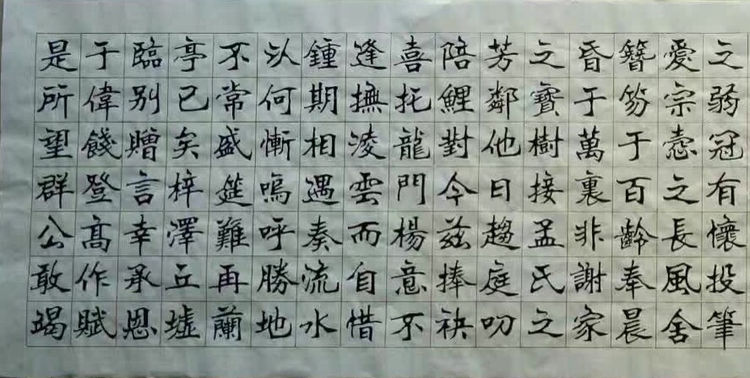 之弱冠有懷投筆
愛宗悫之長風舍
簪笏于百齡奉晨
昏于萬裏非謝家
之寶樹接孟氏之
芳鄰他日趨庭叨
陪鯉對今茲捧袂
喜托龍門楊意不
逢撫淩雲而自惜
鍾期相遇奏流水
以何慚嗚呼勝地
不常盛筵難再蘭
亭已矣梓澤丘墟
臨别贈言幸承恩
于偉餞登高作賦
是所望群公敢竭